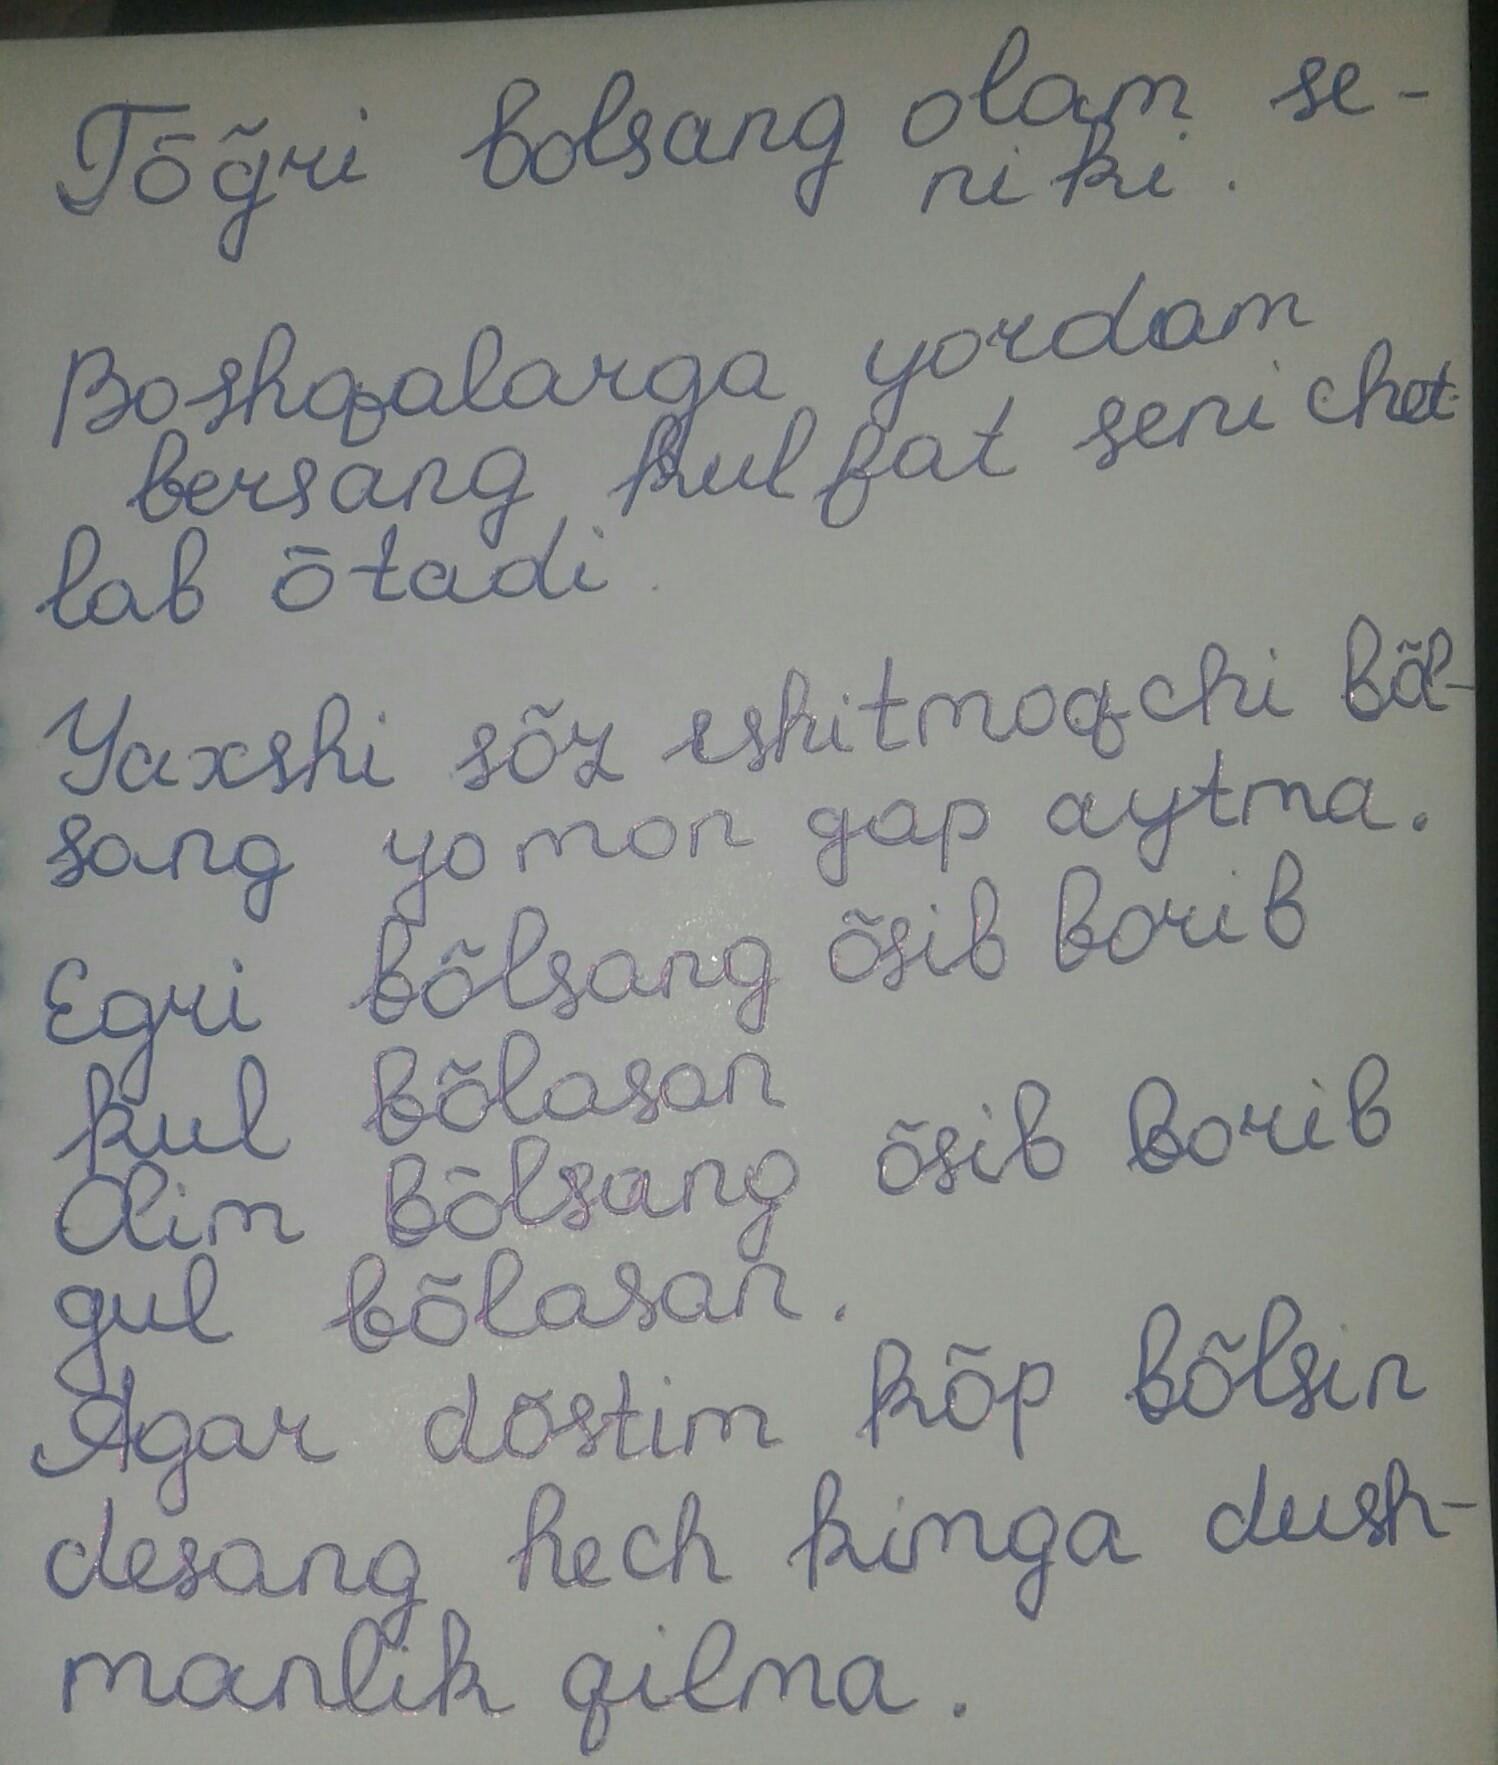 Tōg̃ri bolsang olam se-
niki.
Boshqalarga yordam
bersang kulfat seni chet-
lab ōtadi
Yaxshi sõz eshitmoqchi bõl-
sang yomon gap aytma.
Egri bõlsang õsib borib
kul bõlasan
Olim bõlsang õsib borib
gul bõlasan.
Agar dōstim kõp bõlsin
desang hech kimga dush-
manlik qilma.